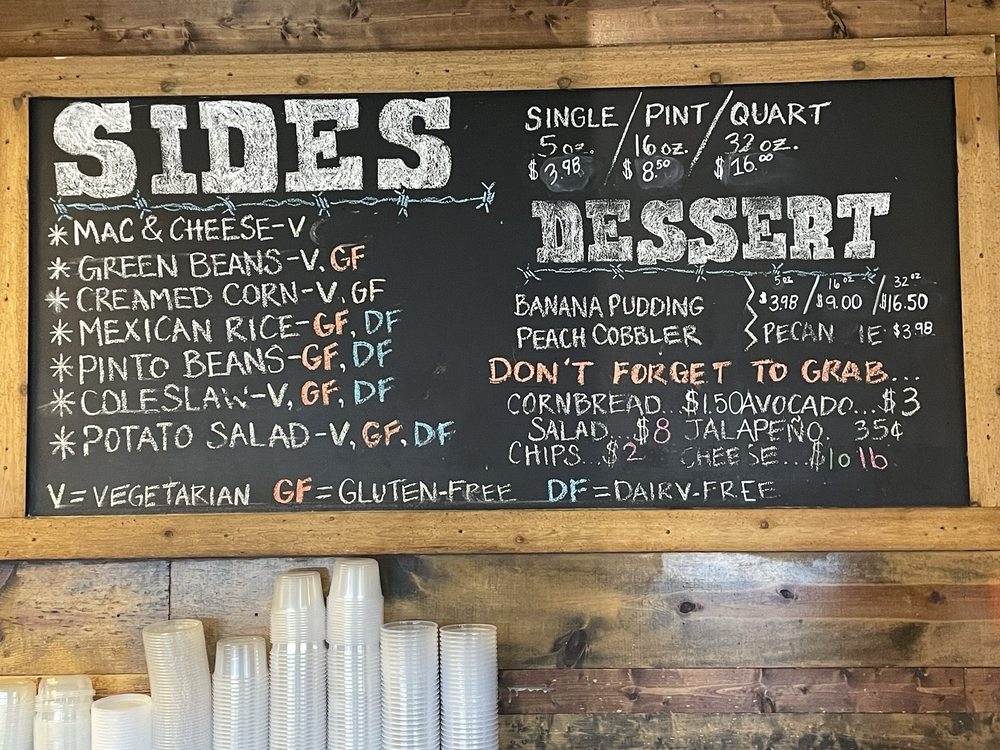 SIDES
*MAC & CHEESE-V
*GREEN BEANS-V, GF
*CREAMED CORN-V, GF
*MEXICAN RICE-GF, DF
*PINTO BEANS-GF, DF
*COLESLAW-V, GF, DF
*POTATO SALAD-V, GF, DF
V=VEGETARIAN GF=GLUTEN-FREE DF=DAIRY-FREE
SINGLE/PINT/QUART
5 oz. 16 oz. 32 oz.
$3.98 $8.50 $16.00
DESSERT
5 oz 16 oz 32 oz
BANANA PUDDING $3.98/$9.00/$16.50
PEACH COBBLER PECAN IE $3.98
DON'T FORGET TO GRAB...
CORNBREAD...$1.50 AVOCADO...$3
SALAD...$8 JALAPEÑO. 35¢
CHIPS...$2 CHEESE...$10 lb